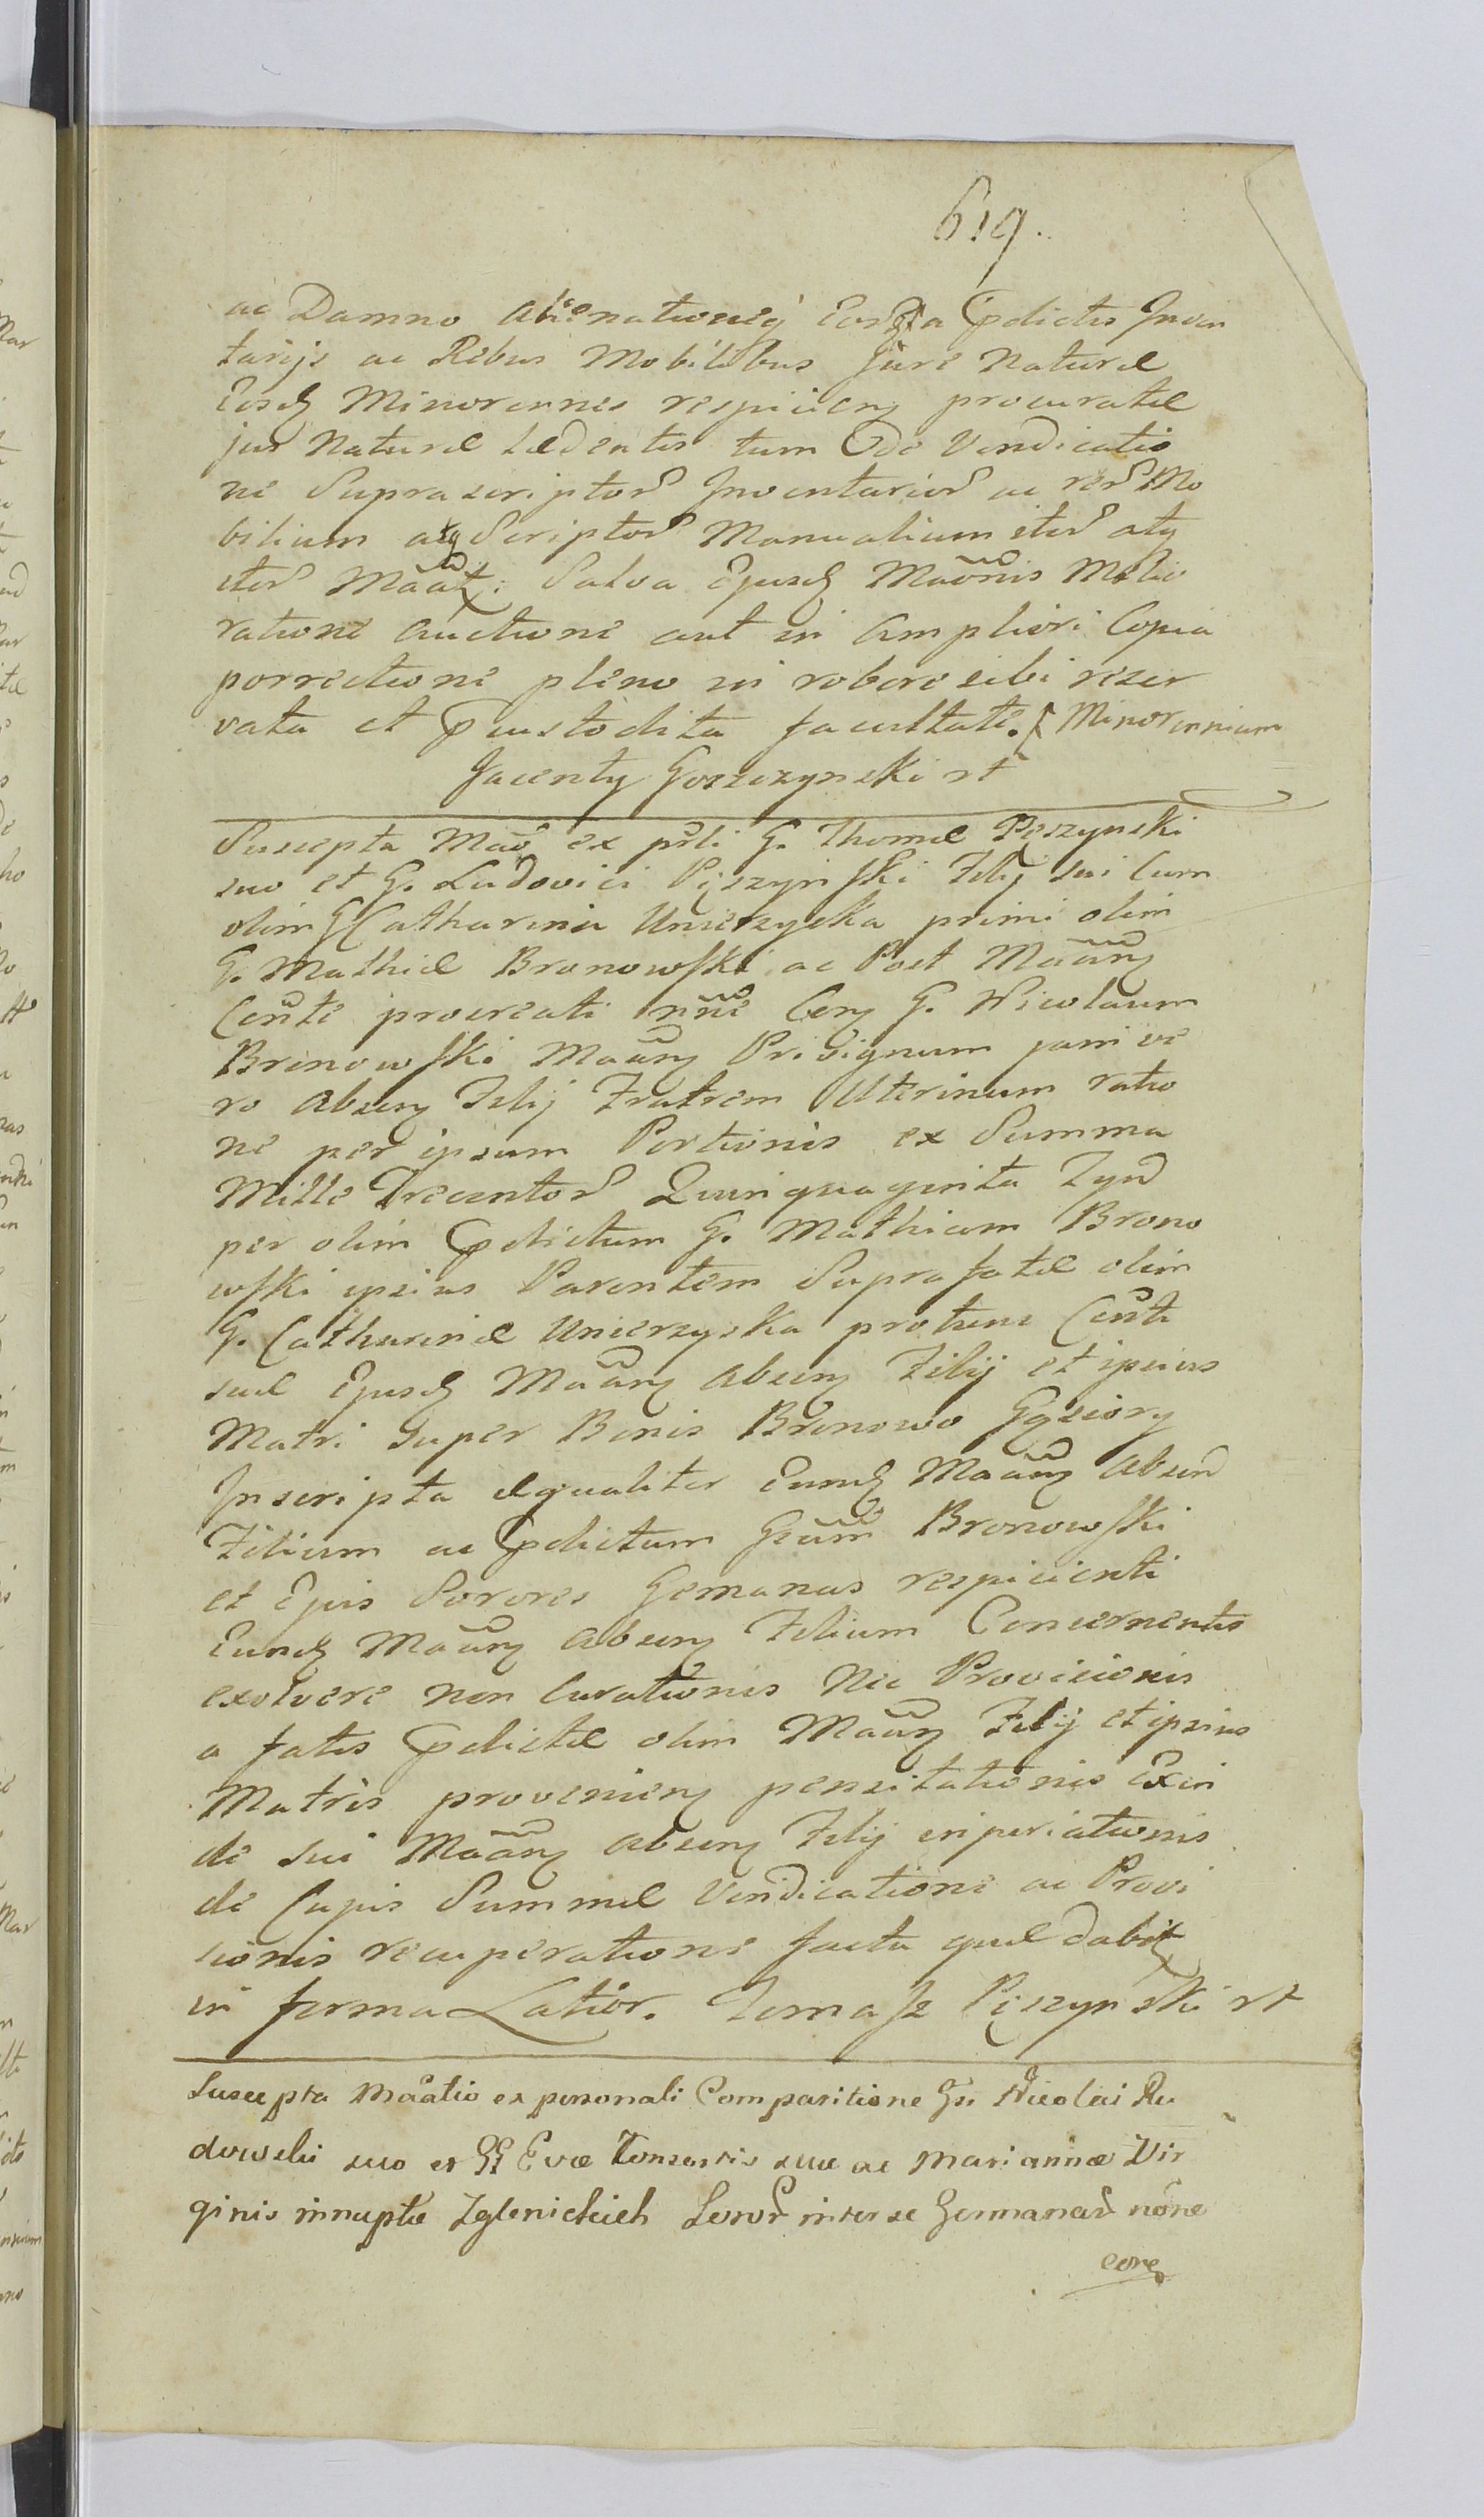 619.
ac Damno alienationeq Eorqa pdictis Inven
tarijs ac Rebus Mobilibus Jure Naturæ
Eosd Minorennes respicien procuratæ
jus Naturæ lædentis tum de Vendicatio
ne Suprascriptor Inventarior ac rer Mo
bilium atq Scriptor Manualium iter atq
iter Maat: Salva Ejusd Maonis Melio
ratione auctione aut in Ampliori Copia
porrectione pleno in robore sibi reser
vata et pcustodita facultate. Minorennium
Jacenty Goszczynski
Suscepta Mao ex psli G. Thomæ Pęszynski
suo et G. Ludovici Pęszynski Filij sui Cum
olim G Catharina Unierzycka primi olim
G. Mathiæ Bronowski ac Post Maan
Cente procreati nne Con G. Nicolaum
Bronowski Maan Privignum jam ve
ro absen Filij Fratrem Uterinum ratio
ne per ipsum Portionis ex Summa
Mille Trecentor Quinquaginta Tyn
per olim pdictum G. Mathiam Brono
wski ipsius Parentem Suprafatæ olim
G. Catharinæ Unierzycka protunc Centi
suæ Ejusd Maan absen Filij et ipsius
Matri super Bonis Bronowo Gąsiory
Inscripta æqualiter Eund Maan absen
Filium ac pdictum Gsum Bronowski
et Ejus Sorores Gemanas respicienti
Eund Maan absen Filium Concernentis
exolvere non Curationis Nec Provisionis
a fatis pdictæ olim Maan Filij et ipsius
Matris provenien pensitationis Exin
de sui Maan absen Filij injuriationis
de Cujus Summæ Vendicatione ac Provi
sionis recuperatione facta quæ dabit
in forma Latior. Tomasz Pęszynski
Suscepta Maatio ex personali Comparitione Gsi Nicolai Ru
dowski suo et GG Evæ Consortis suæ ac Mariannæ Vir
ginis innuptæ Zglenickich Soror inter se Germanar nône
cone